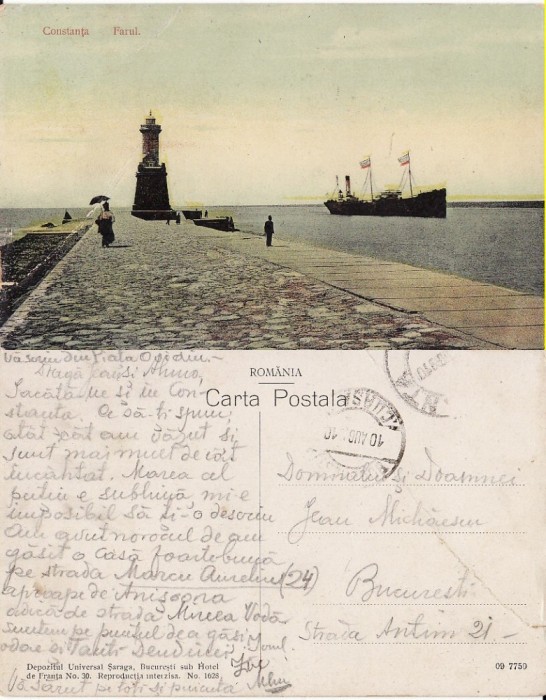 Constanța Farul.
Vă scriu din Piața Ovidiu.-
Dragă Jean și Anno,
Iacătă-ne și în Con-
stanța. Ce să-ți spun;
atât cât am văzut și
sunt mai mult decât
încântat. Marea cel
puțin e sublimă, mi-e
imposibil să ți-o descriu
Am avut norocul de am
găsit o casă foarte bună
pe strada Marcu Aureliu (24)
aproape de
adică de strada Mircea Vodă.
Suntem pe punctul de a găsi
odae și Tanti
Vă sărut pe toți și
ROMÂNIA
Carta Postala
10 AUG. 10
Domnului și Doamnei
Jean Michăescu
București
Strada Antim 21 -
Depozitul Universal Șaraga, București sub Hotel
de Franța No. 30. Reproducția interzisa. No. 1628
09 7750